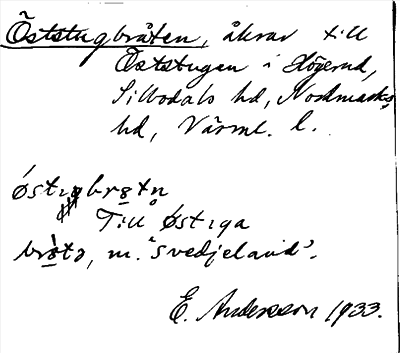 Öststugbråten, åkrar till
Öststugen i Högerud,
Silbodals hd, Nordmarks
hd, Värml. l.
östıgbrɷtn̥
Till östıga
brɷ̀tə, m. "svedjeland".
E. Andersson 1933.